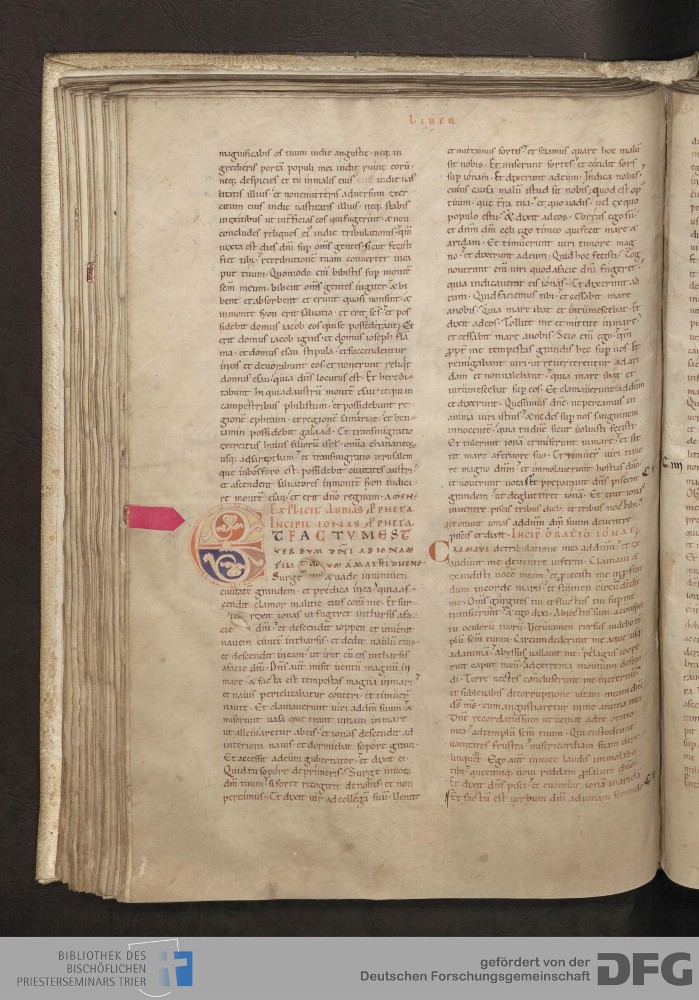 LIBER
magnificabis os tuum in die angustie. neq; in
gredieris portā populi mei in die ruine eorū.
neq; despicies et tu in malis eius in die uas
titatis illius. et non emitteris aduersum exer
citum eius in die uastitatis illius. neq; stabis
in exitibus ut interficias eos qui fugerint. & non
concludes reliquos ei in die tribulationis. qm̄
iuxta est dies dnī sup om̄s gentes. sicut fecisti
fiet tibi. retributionē tuam conuertet in ca
put tuum. Quomodo enī bibistis sup montē
scm̄ meum. bibent om̄s gentes iugiter. & bi
bent et absorbent et erunt quasi non sint. &
in monte syon erit saluatio. et erit scs̄. et pos
sidebit domus iacob eos qui se possederant. Et
erit domus iacob ignis et domus ioseph flā
ma. et domus esau stipula. et succendentur
in eis et deuorabunt eos. et non erunt reliq̄e
domus esau. quia dn̄s locutus est. Et heredi
tabunt hi qui ad austrū montē esau. et qui in
campestribus philistiim. et possidebunt re
gionē ephraim. et regionē samariæ. et ben
iamin possidebit galaad. Et transmigratio
exercitus huius filiorū isrl̄. omīa chananeoȥ
usq; ad sareptham. et transmigratio ierusalem
que in bosforo est. possidebit ciuitates austri.
et ascendent saluatores in montē syon iudica
re montē esau. et erit dn̄o regnum. AMEN.
EXPLICIT ABDIAS PPHETA.
INCIPIT IONAS PPHETA.
ET FACTUM EST
VERBUM DNI AD IONAM
FILIUM AMATHI DICENS.
Surge & uade in niniuen
ciuitatē grandem. et predica in ea. quia as
cendit clamor malitie eius corā me. Et sur
rexit ionas ut fugeret in tharsis a fa
cie dnī. et descendit ioppen. et inuenit
nauem euntē in tharsis. et dedit naulū eius
et descendit in eam. ut iret cū eis in tharsis
a facie dnī. Dn̄s autē misit uentū magnū in
mare. & facta est tempestas magna in mari.
et nauis periclitabatur conteri. et timuer̄
naute. Et clamauerunt uiri ad dm̄ suum. &
miserunt uasa que erant in naui in mare
ut alleuiaretur ab eis. et ionas descendit ad
interiora nauis. et dormiebat sopore graui.
Et accessit ad eum gubernator. et dixit ei.
Quid tu sopore deprimeris? Surge inuoca
dm̄ tuum. si forte recogitet de nobis. et non
pereamus. Et dixit uir ad collegā suū. Uenite
et mittamus sortes. et sciamus quare hoc malū
sit nobis. Et miserunt sortes. et cecidit sors
sup ionam. Et dixerunt ad eum. Indica nobis.
cuius causa malū istud sit nobis. quod est op
tuum. que tr̄a tua. et quo uadis. uel ex quo
populo es tu. & dixit ad eos. Ebreus ego sū.
et dnm̄ dm̄ celi ego timeo qui fecit mare &
aridam. Et timuerunt uiri timore mag
no. et dixerunt ad eum. Quid hoc fecisti? Cog
nouerunt enī uiri quod a facie dnī fugeret.
quia indicauerat eis ionas. Et dixerunt ad
eum. Quid faciemus tibi. et cessabit mare
a nobis? Quia mare ibat et intumescebat. Et
dixit ad eos. Tollite me et mittite in mare.
et cessabit mare a nobis. Scio enī ego. qm̄
ppt̄ me tempestas grandis hec sup uos. Et
remigabant uiri ut reuerterentur ad ari
dam et non ualebant. quia mare ibat et
intumescebat sup eos. Et clamauerunt ad dnm̄
et dixerunt. Quesumus dn̄e. ne pereamus in
anima uiri istius. & ne des sup nos sanguinem
innocentē. quia tu dn̄e sicut uoluisti fecisti.
Et tulerunt ionā et miserunt in mare. et ste
tit mare a feruore suo. Et timuer̄ uiri timo
re magno dnm̄. et immolauerunt hostias dn̄o.
et uouerunt uota. Et preparauit dn̄s piscem
grandem. ut deglutiret ionā. Et erat ionas
in uentre piscis tribus dieb; et tribus noctib;.
et orauit ionas ad dnm̄ dm̄ suum de uentre
piscis et dixit. INCIP ORATIO IONAE.
CLAMAVI de tribulatione mea ad dnm̄. et ex
audiuit me de uentre inferni. Clamaui &
exaudisti uocē meam. et proiecisti me in pfun
dum in corde maris. et flumen circūdedit
me. Om̄s gurgites tui et fluctus tui sup me
transierunt. & ego dixi. Abiectus sum a conspec
tu oculorū tuorū. Uerutamen rursus uidebo tē
plū scm̄ tuum. Circumdederunt me aque usq;
ad animā. abyssus uallauit me. pelagus coope
ruit caput meū. ad extrema montium descen
di. Terre uectes concluserunt me in eternū.
et subleuabis de corruptione uitam meam dn̄e
ds̄ ms̄. cum angustiaretur in me anima mea
Dnī recordatus sum. ut ueniat ad te oratio
mea. ad templū scm̄ tuum. Qui custodiunt
uanitates frustra. misericordiam suam dere
linquūt. Ego autē in uoce laudis immolabo
tibi. quecumq; uoui reddam p salute dn̄o.
Et dixit dn̄s pisci. et euomuit ionā in arida
Et factū est uerbum dnī ad ionam secundo
BIBLIOTHEK DES
BISCHÖFLICHEN
PRIESTERSEMINARS TRIER
gefördert von der
Deutschen Forschungsgemeinschaft
DFG